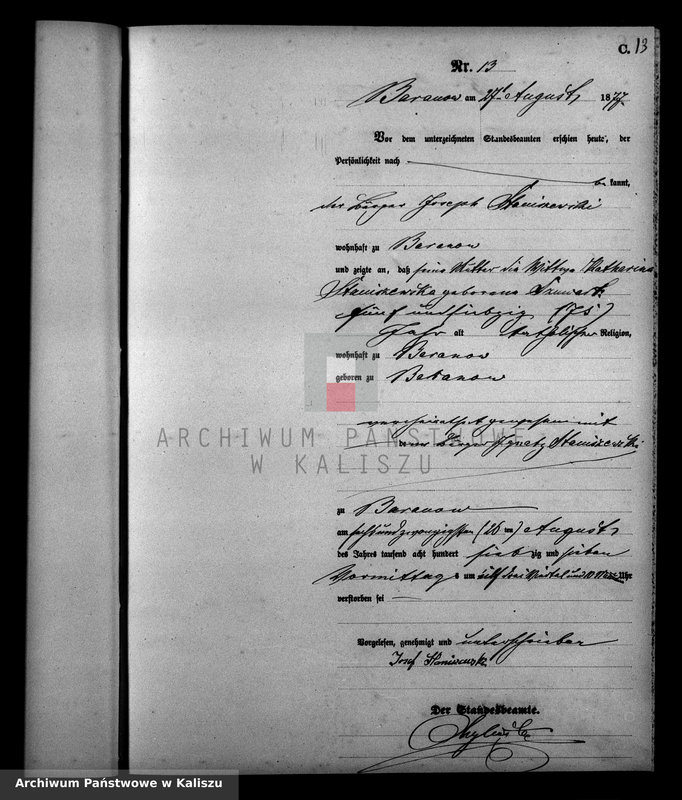 C. 13
Nr. 13
Baranow am 27t August 1877
Vor dem unterzeichneten Standesbeamten erschien heute, der
Persönlichkeit nach
be kannt,
der Bürger Joseph Staniszewski
wohnhaft zu Baranow
und zeigte an, daß seine Mutter die Wittwe Katharina
Staniszewska geborene
fünf und siebzig (75)
Jahr alt katholischer Religion,
wohnhaft zu Baranow
geboren zu Baranow
verheirathet gewesen mit
dem Bürger Ignatz Staniszewski
ARCHIWUM PAŃSTWOWE
W KALISZU
zu Baranow
am sechsundzwanzigsten (26ten) August
des Jahres tausend acht hundert sieb zig und sieben
Vormittag s um drei Viertel und 10 Uhr
verstorben sei
Vorgelesen, genehmigt und unterschrieben
Josef Staniszewski
Der Standesbeamte.
Archiwum Państwowe w Kaliszu